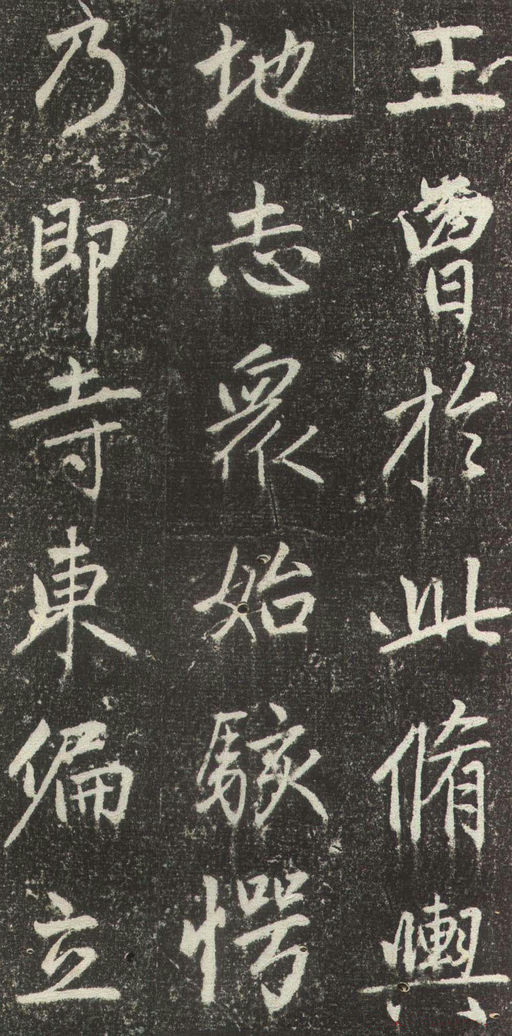 王曾於此脩輿
地志眾始駭愕
乃即寺東偏立